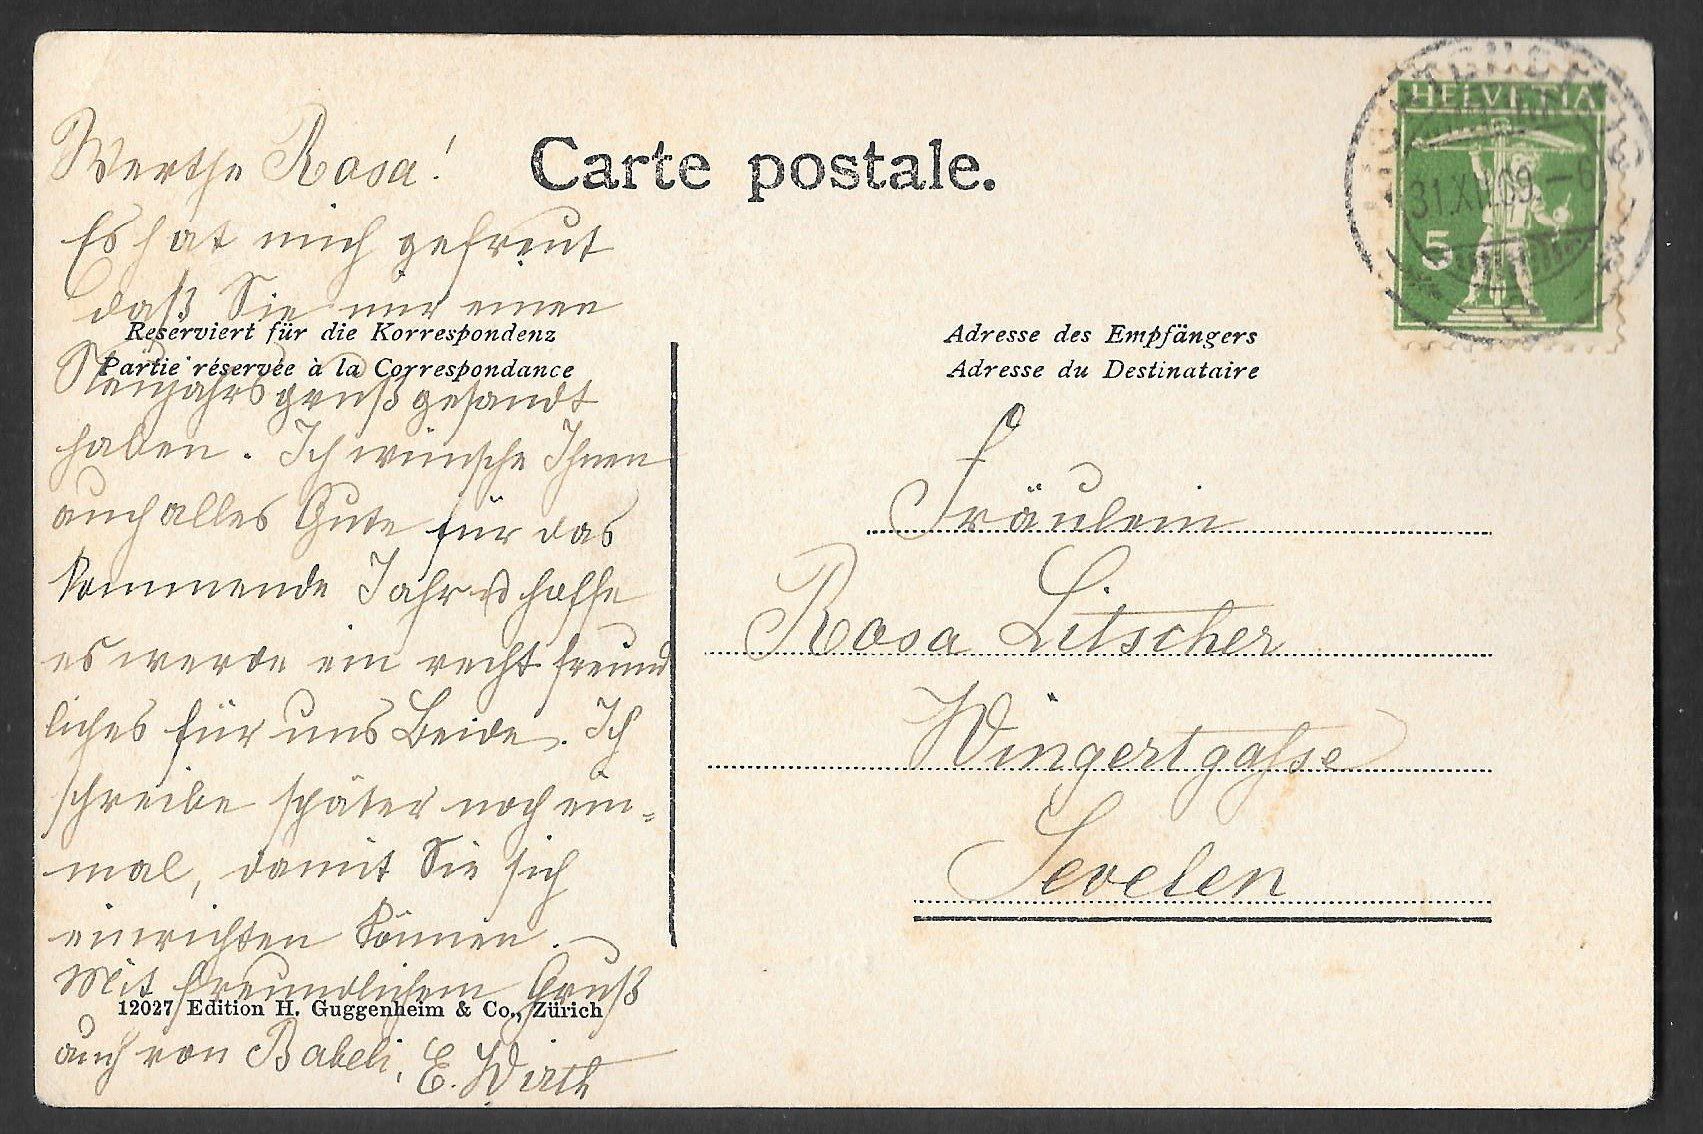 Carte postale.
HELVETIA
31.XII.09.–6
5
Werthe Rosa!
Es hat mich gefreut
daß Sie mir einen
Reserviert für die Korrespondenz
Partie réservée à la Correspondance
Neujahrsgruß gesandt
haben. Ich wünsche Ihnen
auch alles Gute für das
kommende Jahr u hoffe
es werde ein recht freund
liches für uns Beide. Ich
schreibe später noch ein-
mal, damit Sie sich
einrichten können.
Mit freundlichem Gruß
12027 Edition H. Guggenheim & Co., Zürich
auch von Babeli, E. Wirth
Adresse des Empfängers
Adresse du Destinataire
Fräulein
Rosa Litscher
Wingertgasse
Sevelen